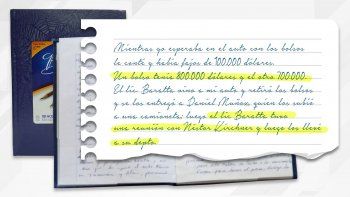 Mientras yo esperaba en el auto con los bolsos
lo conté y había fajos de 100.000 dólares.
Un bolso tenía 800.000 dólares y el otro 700.000.
El lic Baratta vino a mi auto y retiró los bolsos
y se los entregó a Daniel Muñoz, quien los subió
a una camioneta; luego el lic Baratta tuvo
una reunión con Néstor Kirchner y luego los llevé
a su depto.